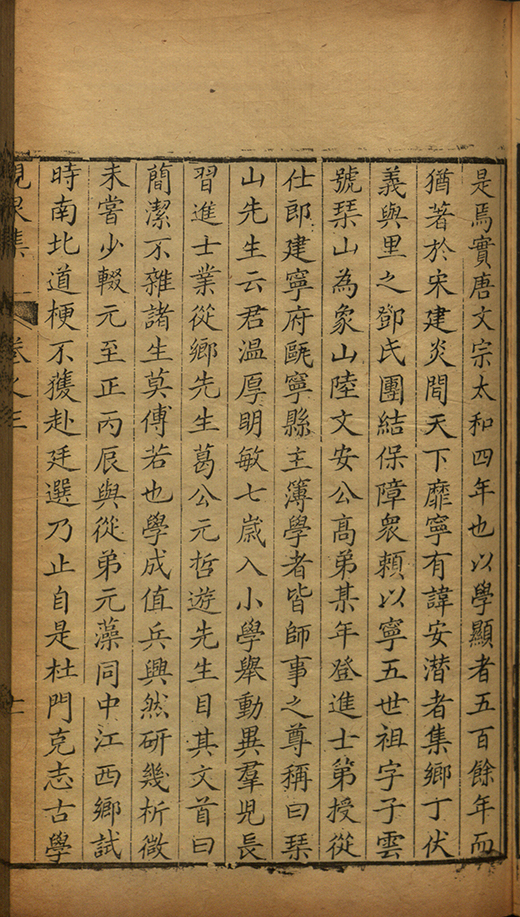 是焉實唐文宗太和四年也以學顯者五百餘年而
猶著於宋建炎間天下靡寧有諱安潜者集鄉丁伏
義與里之鄧氏團結保障衆頼以寧五世祖字子雲
號琹山為象山陸文安公高弟某年登進士第授從
仕郎建寧府甌寧縣主簿學者皆師事之尊稱曰琹
山先生云君溫厚明敏七歲入小學舉動異羣児長
習進士業從鄉先生葛公元哲遊先生目其文首曰
簡潔不雜諸生莫傅若也學成值兵興然研幾析微
未嘗少輟元至正丙辰與從弟元藻同中江西鄉試
時南北道梗不獲赴廷選乃止自是杜門克志古學